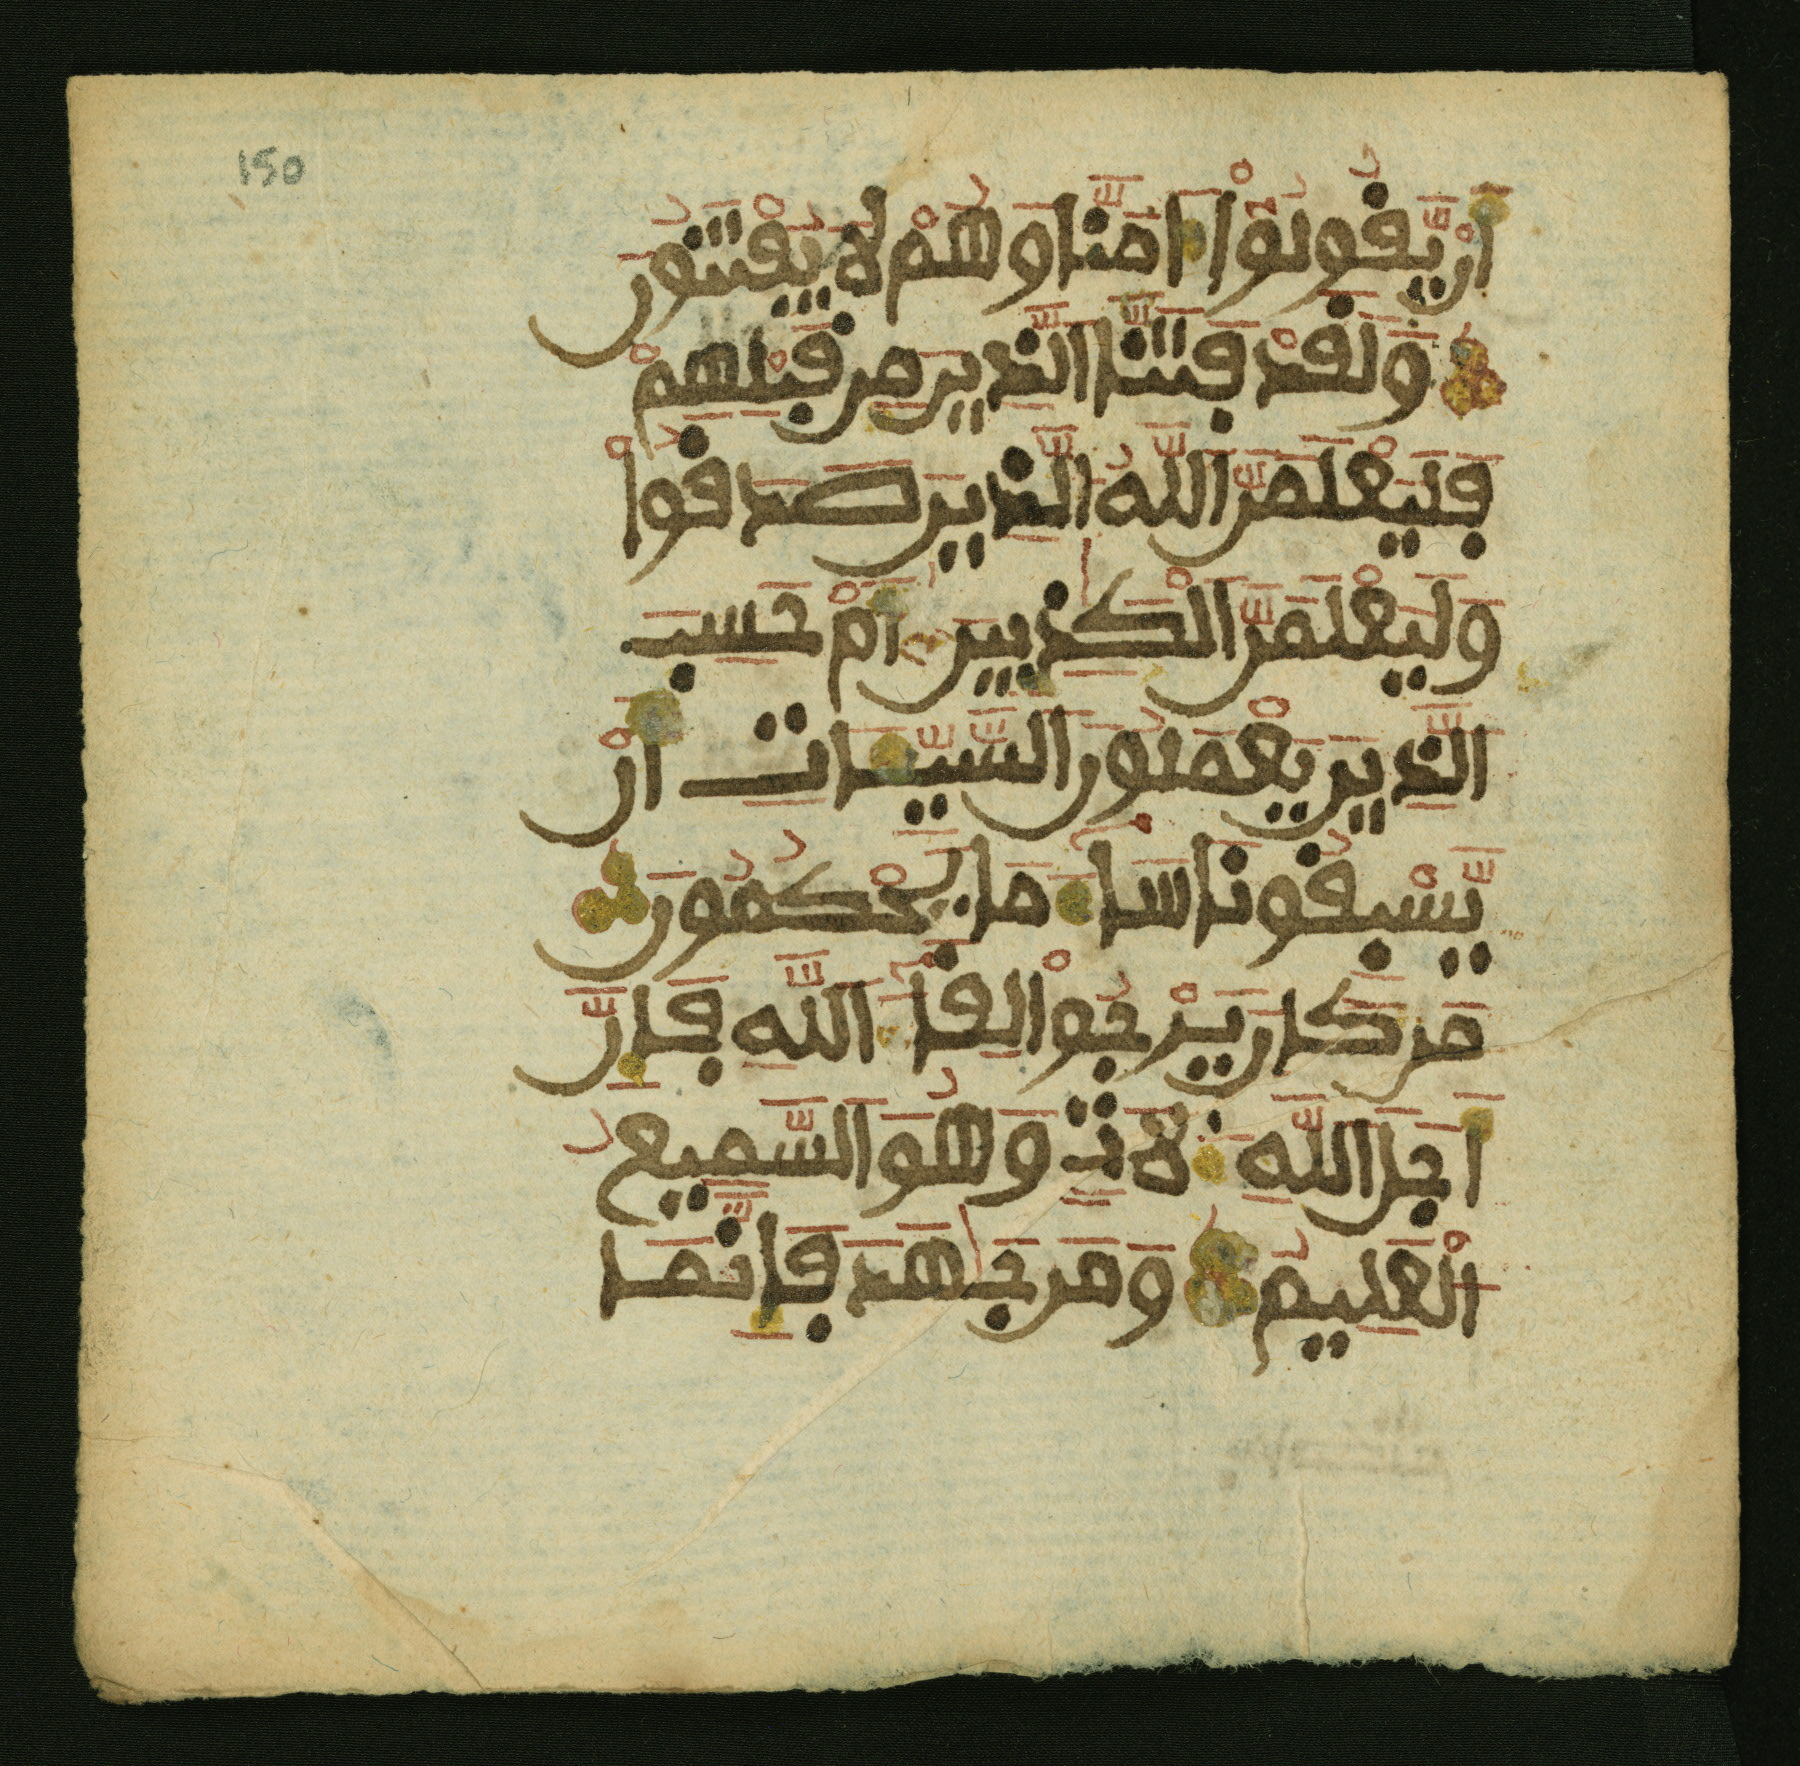 150
اَنْ يَّقُولُوْا ءَامَنَّا وَهُمْ لَا يُفْتَنُونَ
وَلَقَدْ فَتَنَّا الَّذِينَ مِن قَبْلِهِمْ
فَلَيَعْلَمَنَّ اللَّهُ الَّذِينَ صَدَقُواْ
وَلَيَعْلَمَنَّ الْكَٰذِبِينَ أَمْ حَسِبَ
الَّذِينَ يَعْمَلُونَ السَّيِّـَٔاتِ أَنْ
يَّسْبِقُونَا سَآءَ مَا يَحْكُمُونَ
مَن كَانَ يَرْجُوا لِقَآءَ اللَّهِ فَإِنَّ
أَجَلَ اللَّهِ لَأَتٍ وَهُوَ السَّمِيعُ
الْعَلِيمُ وَمَن جَٰهَدَ فَإِنَّمَا